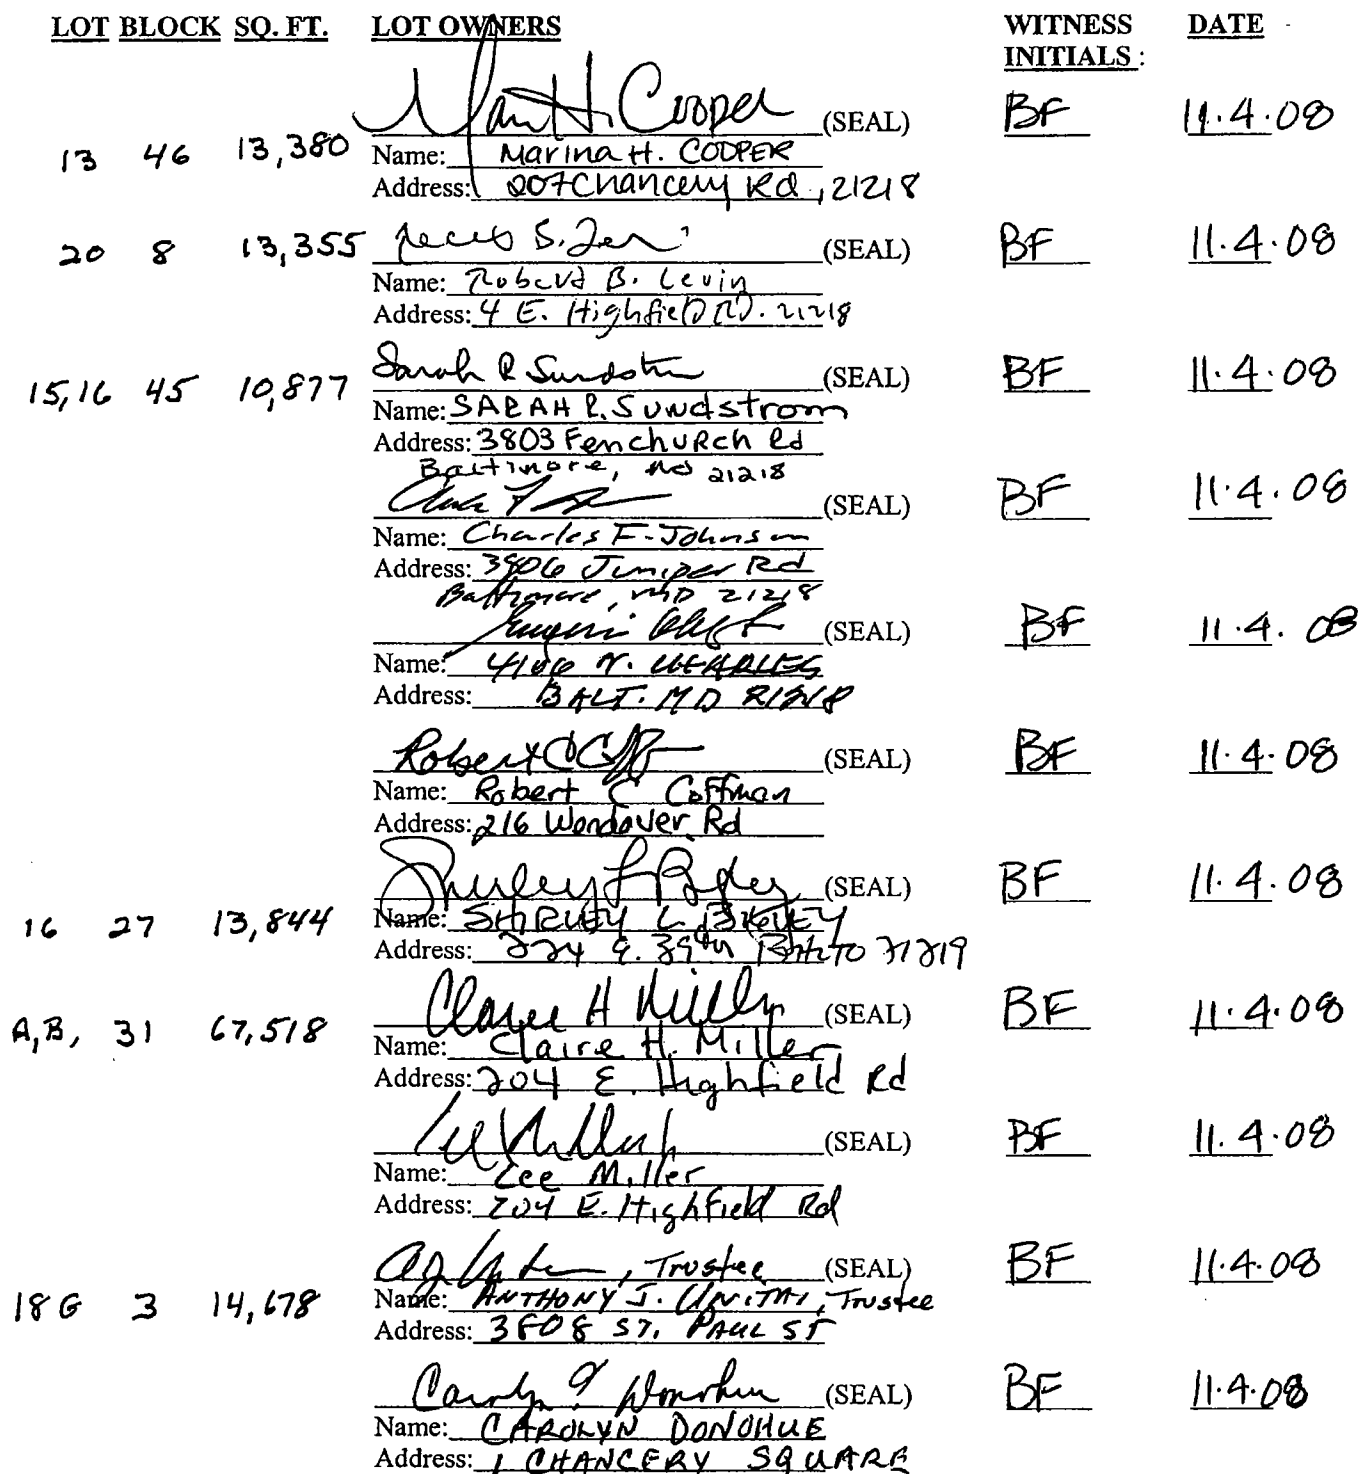 LOT BLOCK SQ. FT. LOT OWNERS WITNESS INITIALS : DATE
Cooper (SEAL) BF 11.4.08
13 46 13,380 Name: Marina H. COOPER
Address: 207 Chancery Rd, 21218
20 8 13,355 (SEAL) BF 11.4.08
Name: Robert B. Levin
Address: 4 E. Highfield Rd. 21218
15,16 45 10,877 Sarah R Sundstrom (SEAL) BF 11.4.08
Name: SARAH R. Sundstrom
Address: 3803 Fenchurch Rd
Baltimore, Md 21218
(SEAL) BF 11.4.08
Name: Charles F. Johnson
Address: 3906 Juniper Rd
Baltimore, MD 21218
(SEAL) BF 11.4.08
Name: 4106 N. CHARLES
Address: BALT. MD 21218
Robert C (SEAL) BF 11.4.08
Name: Robert C Coffman
Address: 216 Wendover Rd
Shirley L (SEAL) BF 11.4.08
16 27 13,844 Name: SHIRLEY L.
Address: 224 39th Balto
Claire H Miller (SEAL) BF 11.4.08
A,B, 31 67,518 Name: Claire H. Miller
Address: 204 E. Highfield Rd
Lee Miller (SEAL) BF 11.4.08
Name: Lee Miller
Address: 204 E. Highfield Rd
, Trustee (SEAL) BF 11.4.08
18 G 3 14,678 Name: ANTHONY J. , Trustee
Address: 3808 ST. PAUL ST
Carolyn Donohue (SEAL) BF 11.4.08
Name: CAROLYN DONOHUE
Address: 1 CHANCERY SQUARE